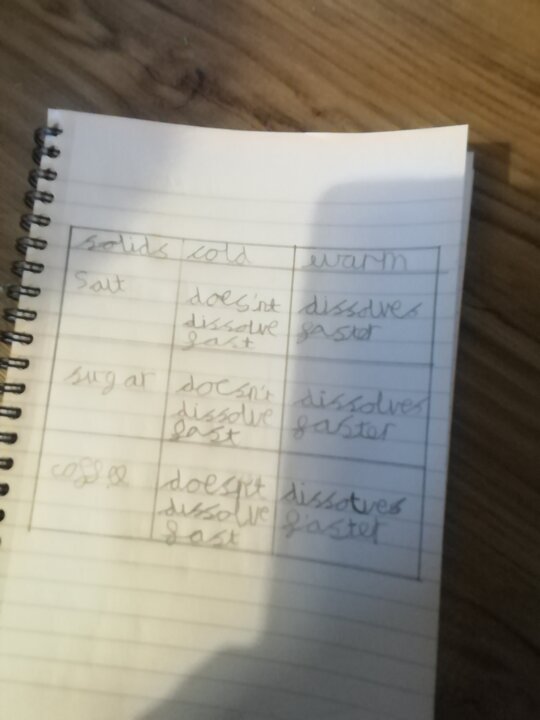 solids cold warm
Salt
does'nt dissolves
dissolve faster
fast
sugar doesn't dissolves
dissolve faster
fast
coffee doesn't dissolves
dissolve faster
fast